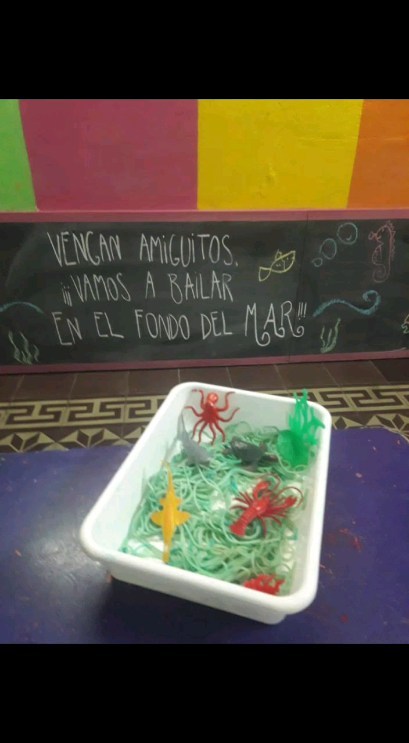 VENGAN AMIGUITOS,
¡¡¡VAMOS A BAILAR
EN EL FONDO DEL MAR!!!